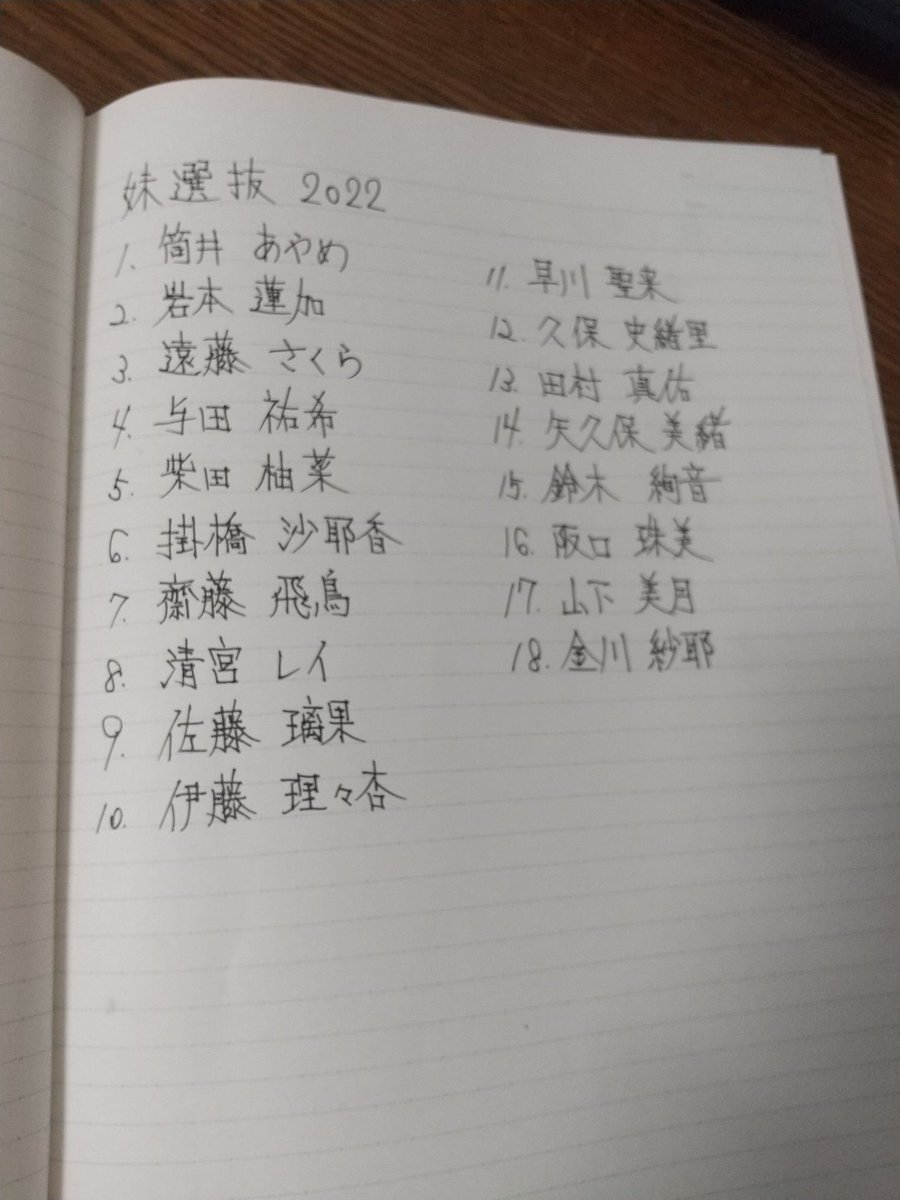 妹選抜 2022
1. 筒井 あやめ
2. 岩本 蓮加
3. 遠藤 さくら
4. 与田 祐希
5. 柴田 柚菜
6. 掛橋 沙耶香
7. 齋藤 飛鳥
8. 清宮 レイ
9. 佐藤 璃果
10. 伊藤 理々杏
11. 早川 聖来
12. 久保 史緒里
13. 田村 真佑
14. 矢久保 美緒
15. 鈴木 絢音
16. 阪口 珠美
17. 山下 美月
18. 金川 紗耶